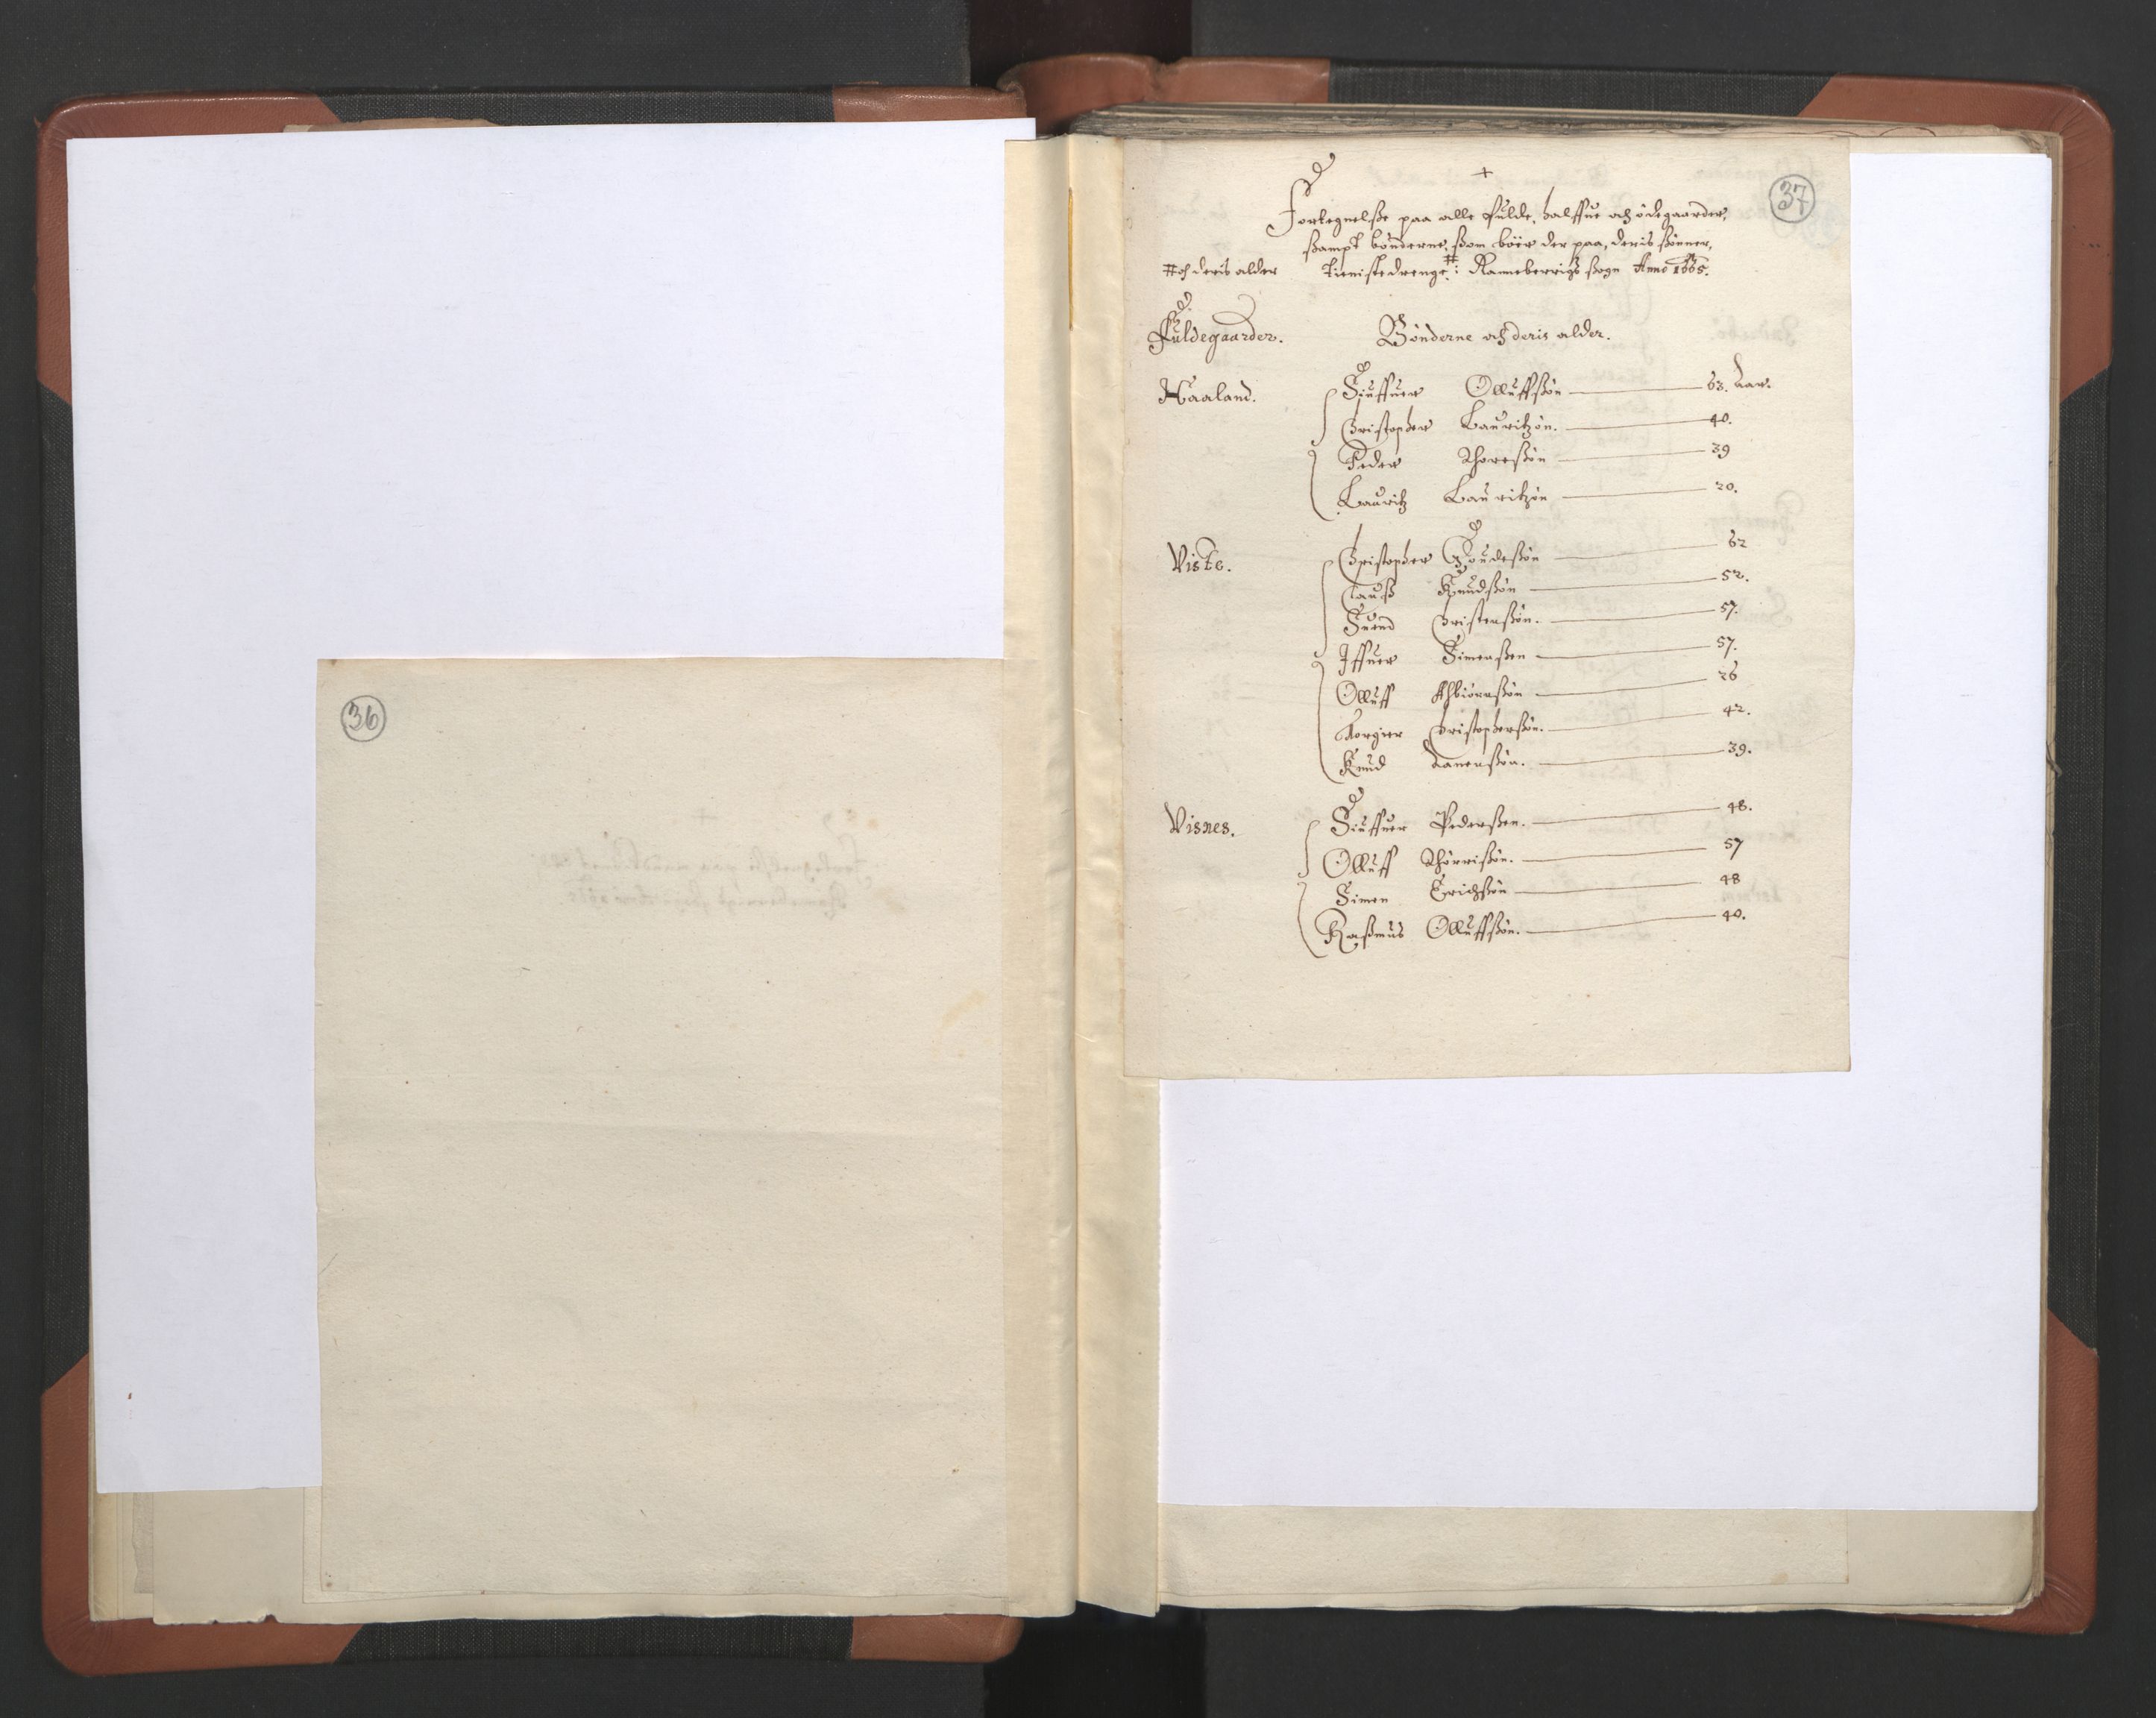 36
37
+
Fortegnelsße paa alle fulde, halffue och ödegaarder,
ßampt bönderne, ßom böer der paa, deris ßönner,
# och deris alder tienistedrenge # : Ranneberrigs ßogn Anno 1665.
Fuldegaarder. Bönderne och deris alder.
Haaland. Siuffuer Olluffßön 63. Aar.
Christopher Lauritzön. 40.
Peder Thoreßön 39
Lauritz Lauritzön 20.
Viste. Christopher Goudeßön 62
Clauß Knudßön 52.
Suend Christenßön. 57.
Iffuer Simenßen 57.
Olluff Aßbiörnßön 26
Torgier Christopherßön. 42.
Knud Aanenßön. 39.
Visnes. Siuffuer Pederßen. 48.
Olluff Thörrisön. 57
Simen Erichßön 48
Raßmus Olluffßön. 40.